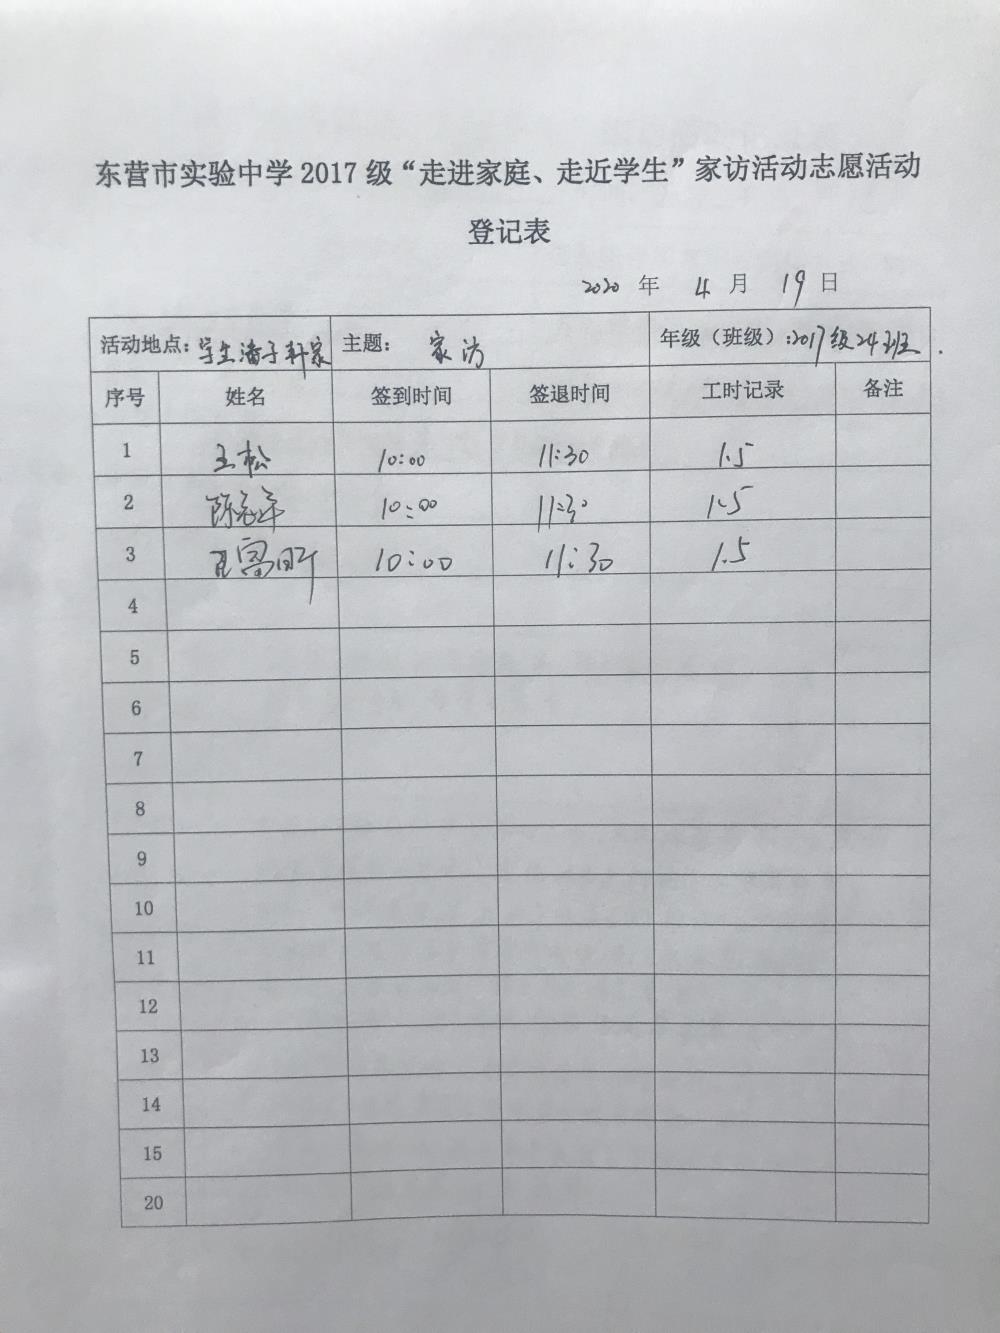 东营市实验中学 2017 级“走进家庭、走近学生”家访活动志愿活动
登记表
2020 年 4 月 19 日
活动地点：学生潘子轩家 主题： 家访 年级（班级）:2017级24班.
序号 姓名 签到时间 签退时间 工时记录 备注
1 王松 10:00 11:30 1.5
2 陈 10:00 11:30 1.5
3 10:00 11:30 1.5
4
5
6
7
8
9
10
11
12
13
14
15
20